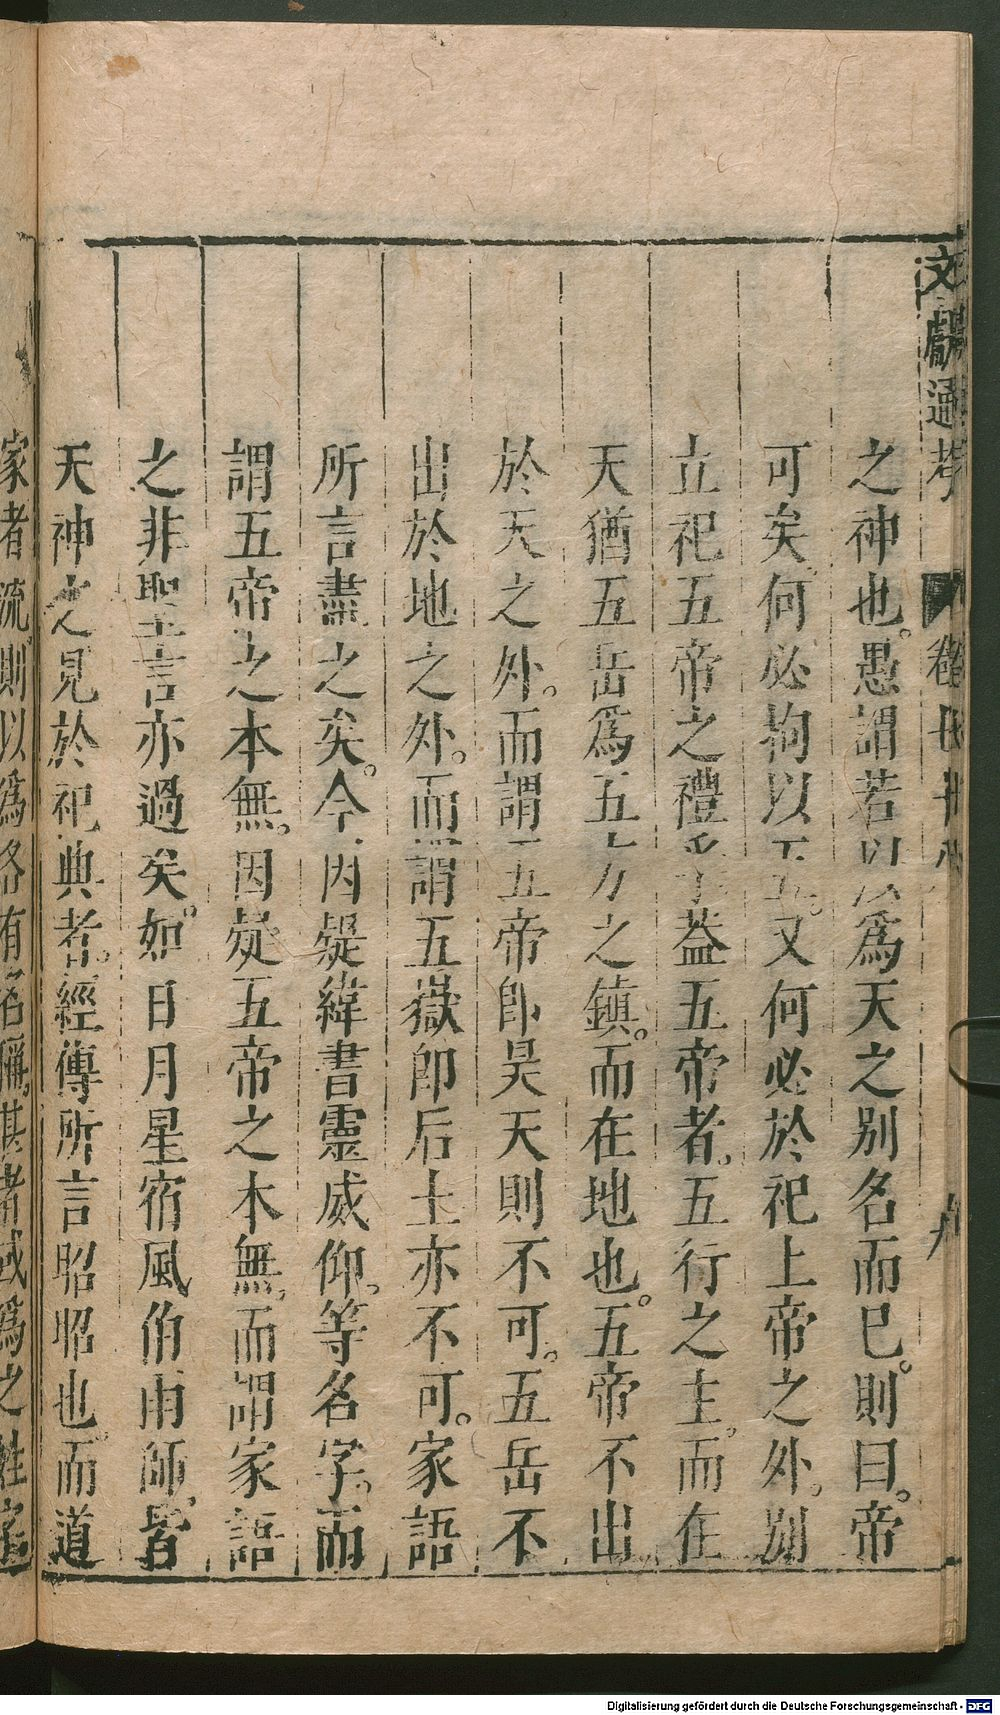 文獻通考
之神也。愚謂若以爲天之别名而已。則曰。帝
可矣何必拘以五。又何必於祀上帝之外。别
立祀五帝之禮乎蓋五帝者。五行之主。而在
天猶五岳爲五方之鎮。而在地也。五帝不出
於天之外。而謂五帝卽昊天則不可。五岳不
出於地之外。而謂五嶽卽后土亦不可。家語
所言盡之矣。今因疑緯書靈威仰。等名字。而
謂五帝之本無。因疑五帝之本無。而謂家語
之非聖言亦過矣。如日月星宿風伯雨師。皆
天神之見於祀典者。經傳所言昭昭也。而道
家者流。則以爲各有名稱。其者或爲之姓字
Digitalisierung gefördert durch die Deutsche Forschungsgemeinschaft - DFG